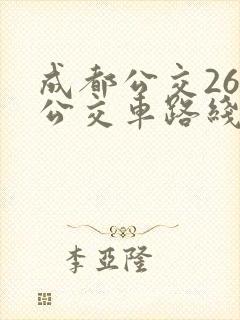 成都公交26
公交车路线
李亞隆